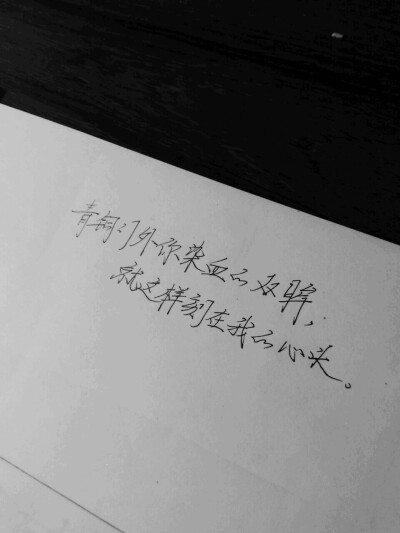 青铜门外你染血的双眸，
就这样刻在我的心头。